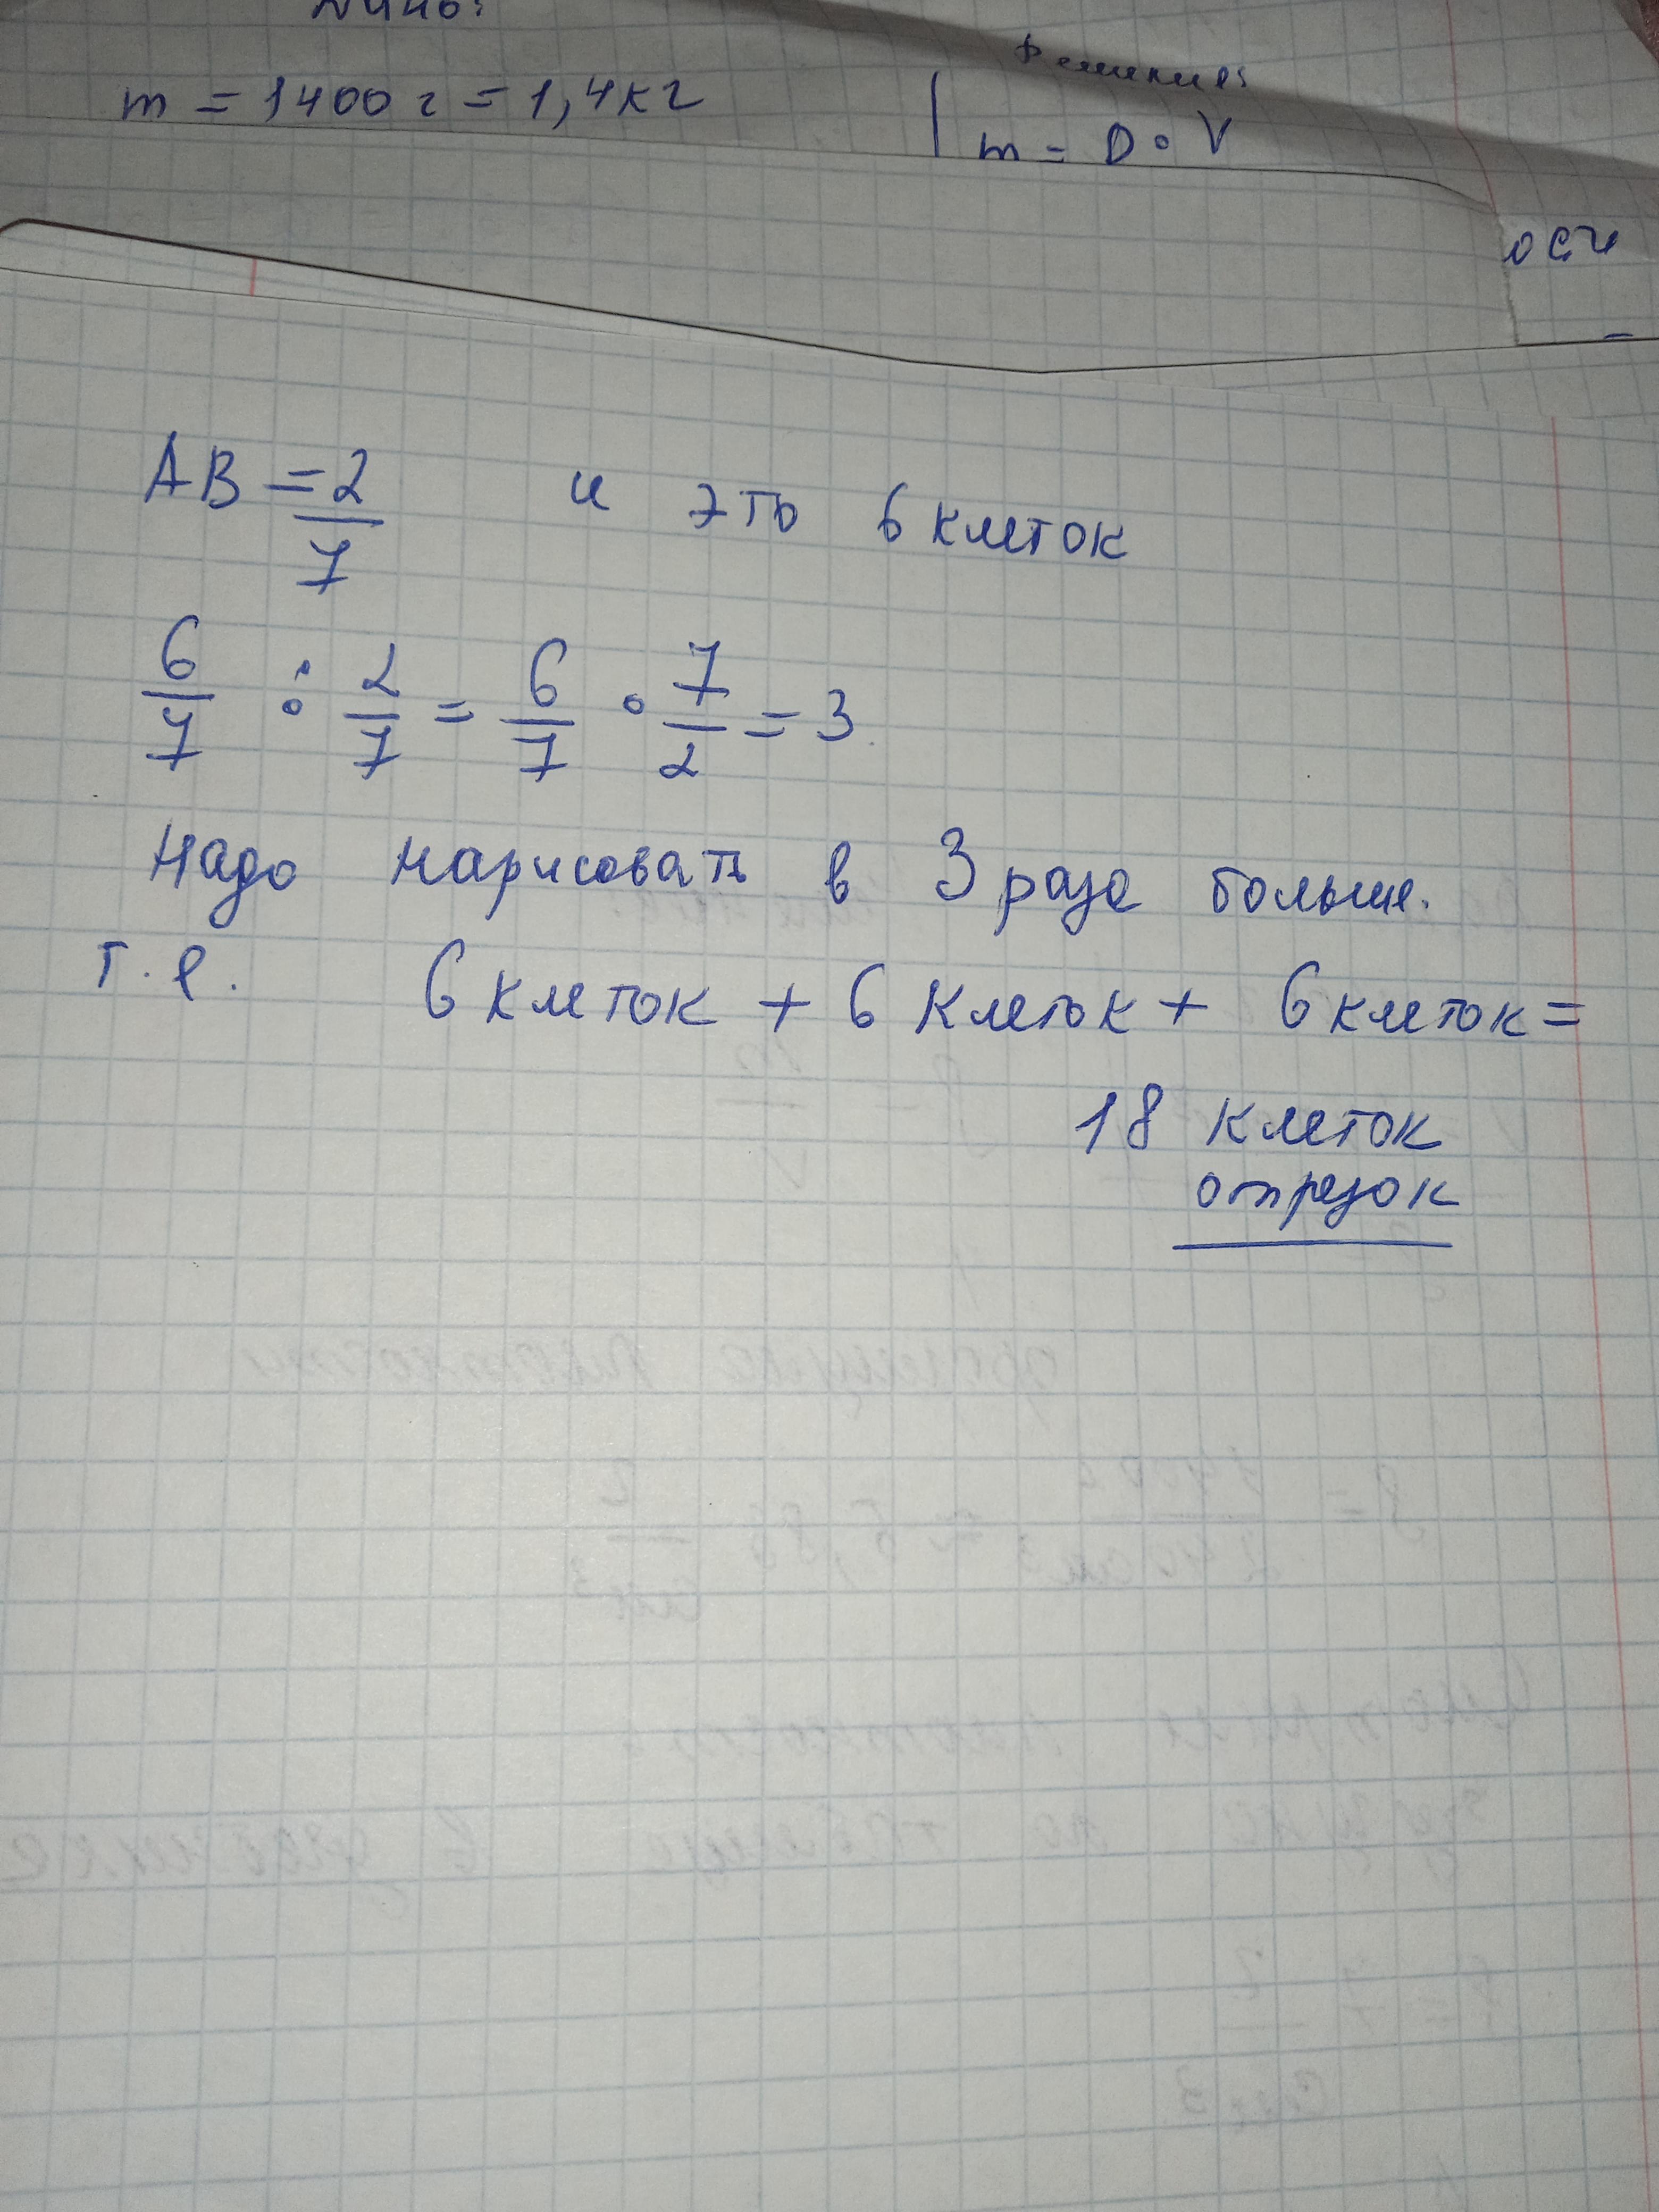 m = 1400 г = 1,4 кг
Решение:
m = ρ · V
ости
AB = 2/7 и это 6 клеток
6/7 : 2/7 = 6/7 · 7/2 = 3
Надо нарисовать в 3 раза больше.
т.е. 6 клеток + 6 клеток + 6 клеток =
18 клеток
отрезок